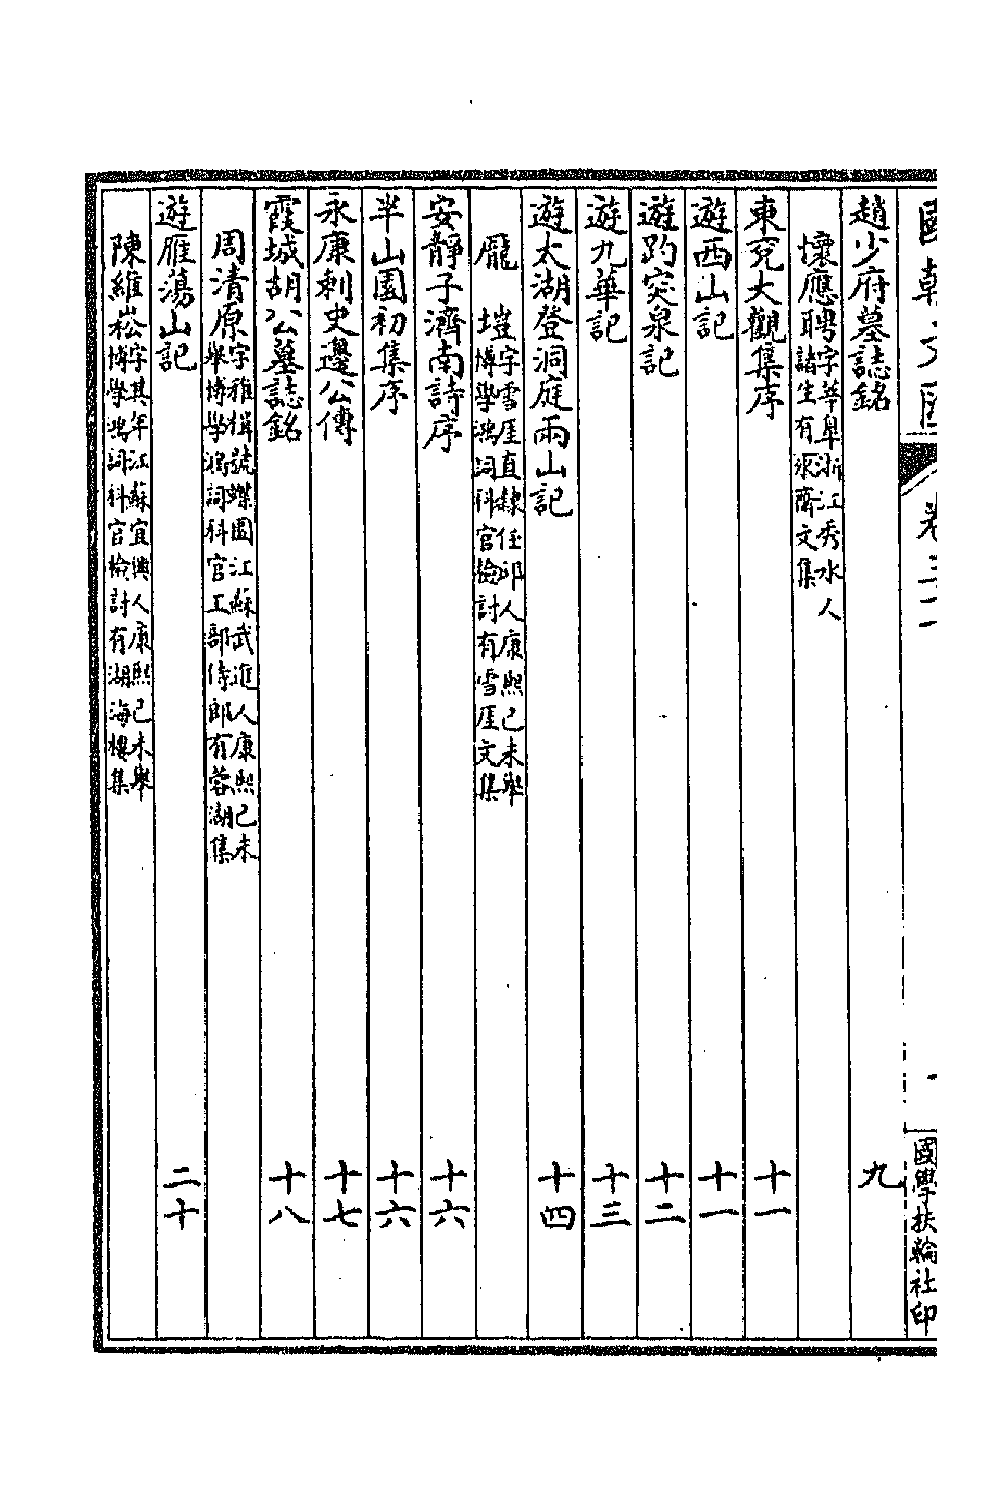 國朝文匯　卷三十一　一　國學扶輪社印
趙少府墓誌銘　九
懷應聘　字莘皐浙江秀水人
諸生有冰齋文集
東兗大觀集序　十一
遊西山記　十一
遊趵突泉記　十二
遊九華記　十三
遊太湖登洞庭兩山記　十四
龐塏　字雪厓直隸任邱人康熙己未舉
博學鴻詞科官檢討有雪厓文集
安靜子濟南詩序　十六
半山園初集序　十六
永康刺史邊公傳　十七
霞城胡公墓誌銘　十八
周清原　字雅楫號蝶園江蘇武進人康熙己未
舉博學鴻詞科官工部侍郎有蓉湖集
遊雁蕩山記　二十
陳維崧　字其年江蘇宜興人康熙己未舉
博學鴻詞科官檢討有湖海樓集